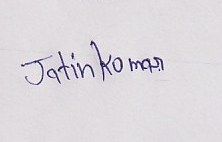 Jatin Kumar